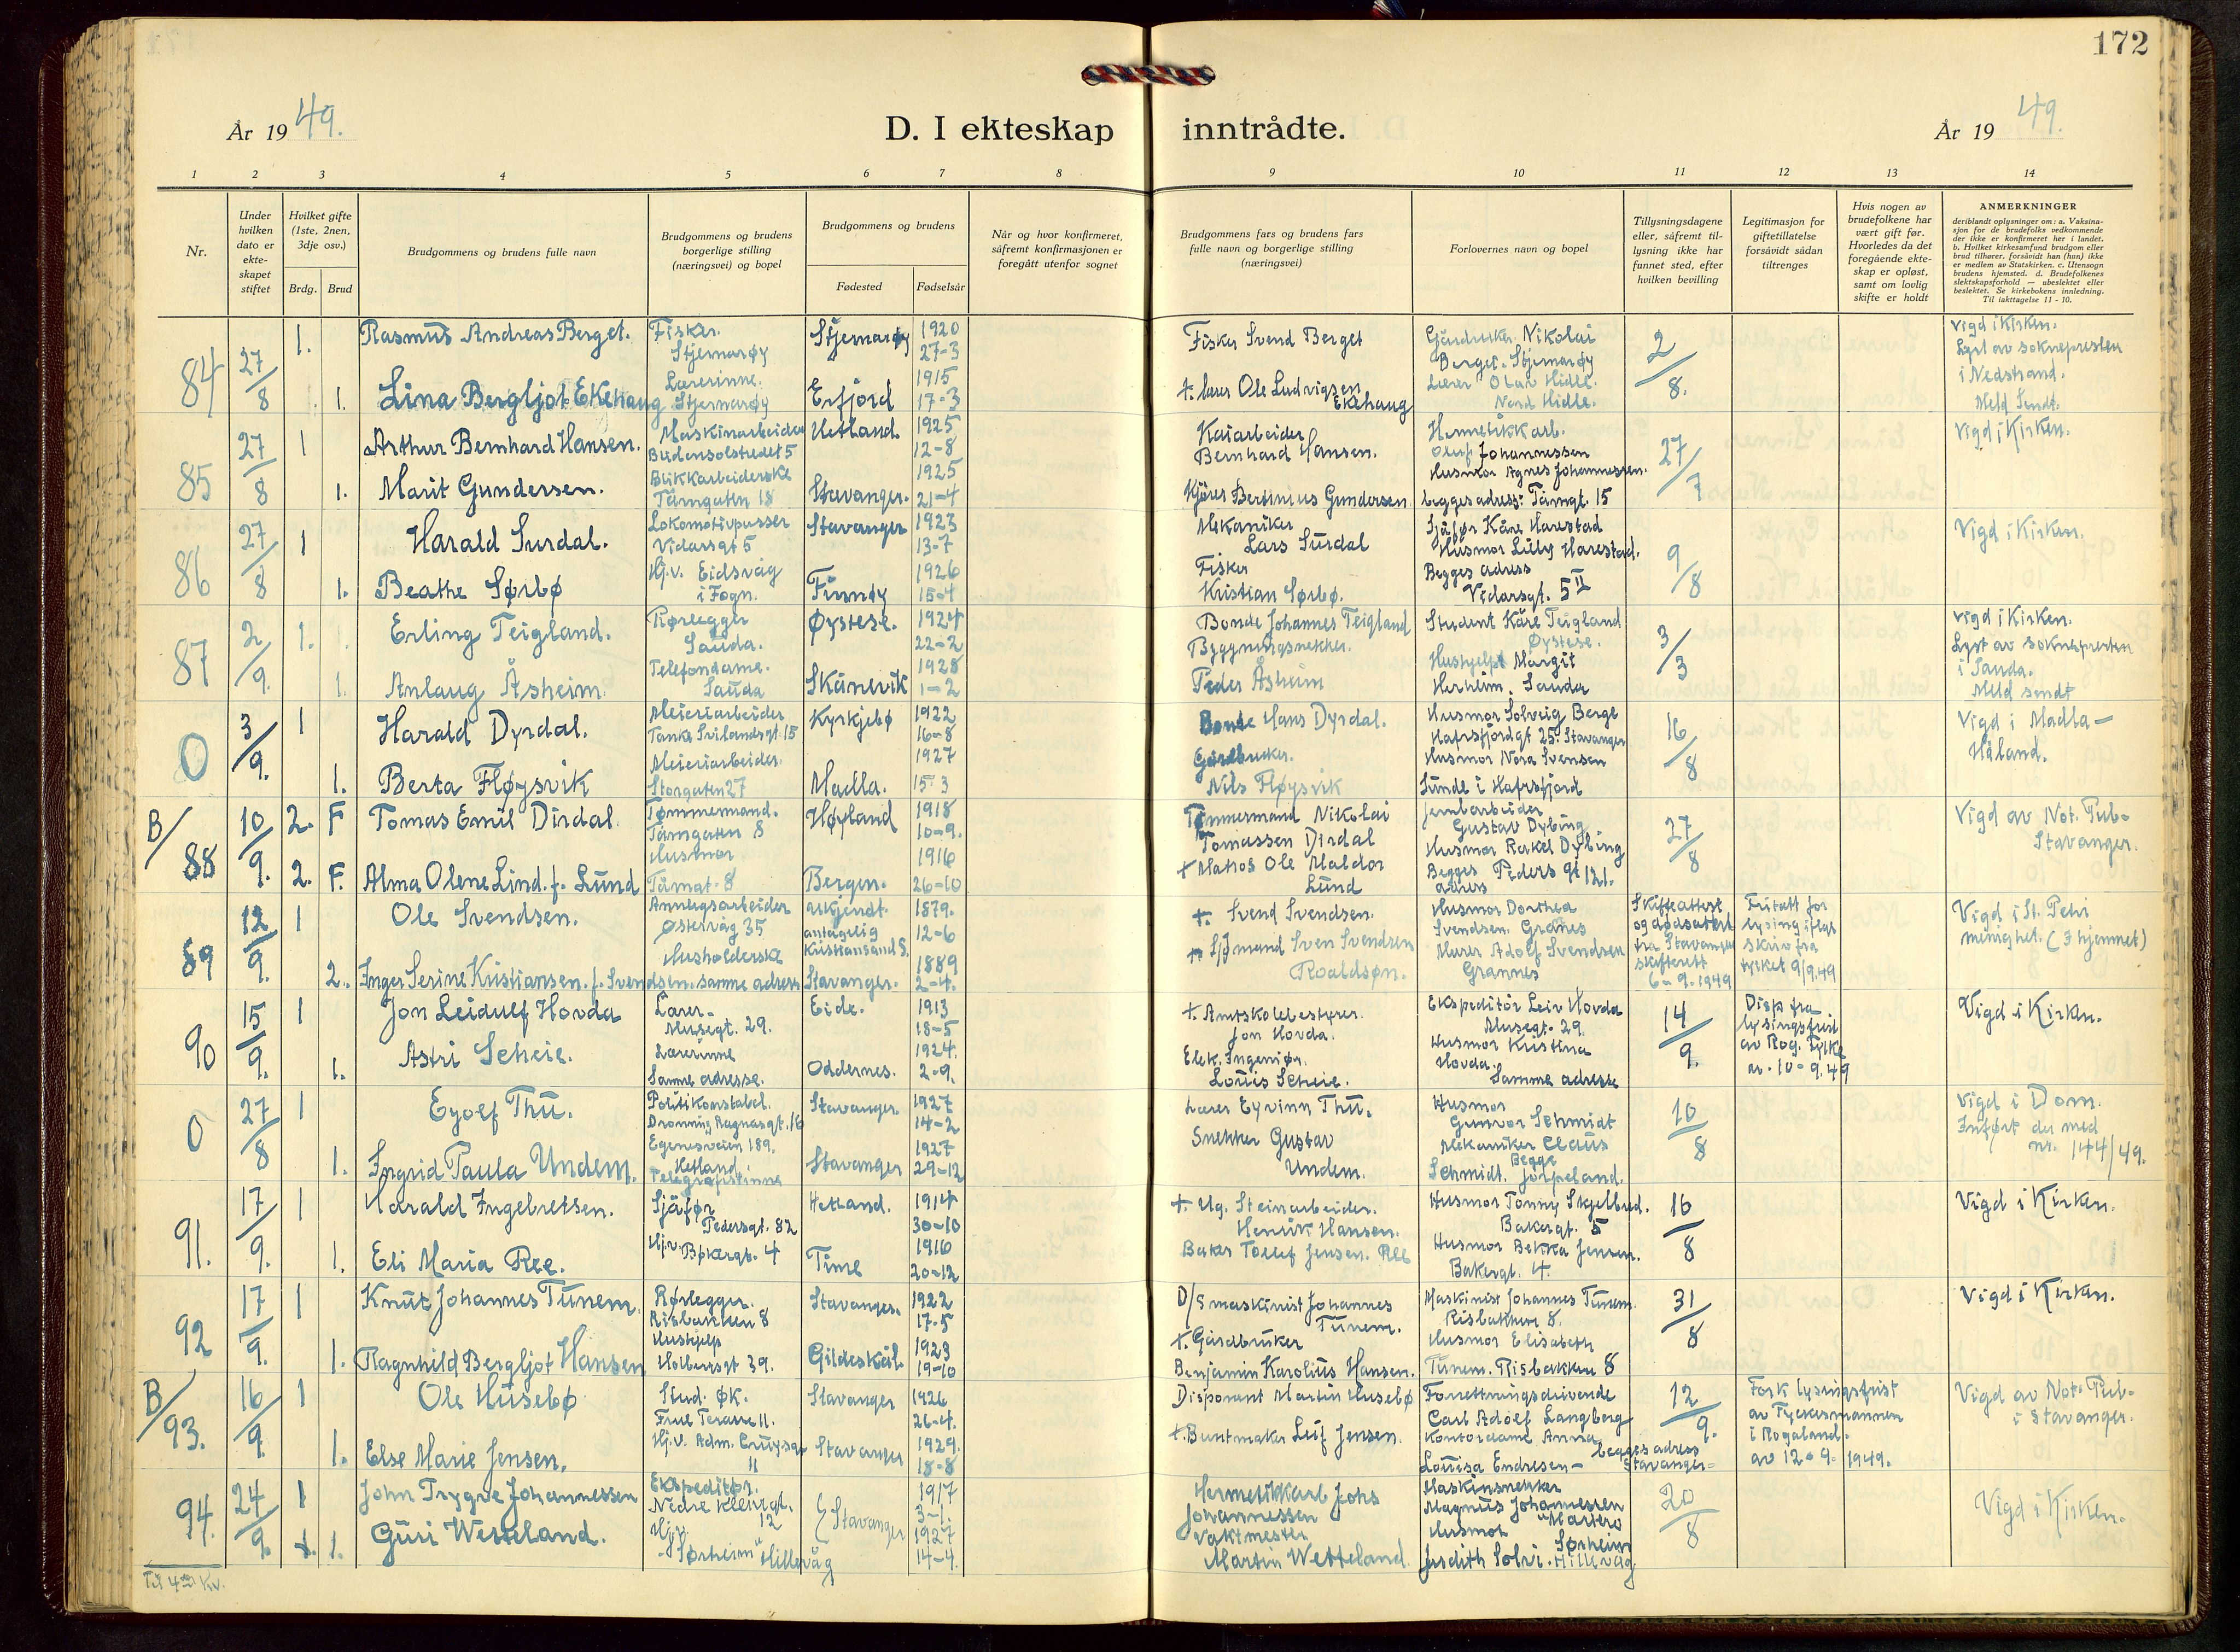 172
År 19 49.
D. I ekteskap inntrådte.
År 19 49.
1 2 3 4 5 6 7 8 9 10 11 12 13 14
Nr.
Under hvilken dato er ekte-skapet stiftet
Hvilket gifte (1ste, 2nen, 3dje osv.)
Brdg. Brud
Brudgommens og brudens fulle navn
Brudgommens og brudens borgerlige stilling (næringsvei) og bopel
Brudgommens og brudens
Fødested Fødselsår
Når og hvor konfirmeret, såfremt konfirmasjonen er foregått utenfor sognet
Brudgommens fars og brudens fars fulle navn og borgerlige stilling (næringsvei)
Forlovernes navn og bopel
Tillysningsdagene eller, såfremt til-lysning ikke har funnet sted, efter hvilken bevilling
Legitimasjon for giftetillatelse forsåvidt sådan tiltrenges
Hvis nogen av brudefolkene har vært gift før. Hvorledes da det foregående ekte-skap er opløst, samt om lovlig skifte er holdt
ANMERKNINGER
deriblandt oplysninger om: a. Vaksina-sjon for de brudefolks vedkommende der ikke er konfirmeret her i landet. b. Hvilket kirkesamfund brudgom eller brud tilhører, forsåvidt han (hun) ikke er medlem av Statskirken. c. Utensogn brudens hjemsted. d. Brudefolkenes slektskapsforhold — ubeslektet eller beslektet. Se kirkebokens innledning. Til iakttagelse 11 - 10.
84 27/8 1. Rasmus Andreas Berget. Fisker. Stjernarøy Stjernarøy 1920 27-3 Fisker Svend Berget Gårdbruker Nikolai Berget. Stjernarøy 2/8. Vigd i Kirken. Lyst av soknepresten i Nedstrand. Meld sendt.
1. Lina Bergljot Ekehaug Lærerinne. Stjernarøy Erfjord 1915 17-3 + lærer Ole Ludvigsen Ekehaug Lærer Olav Hidle. Nord Hidle.
85 27/8 1 Arthur Bernhard Hansen. Maskinarbeider Budensolstredet 5 Hetland. 1925 12-8 Kaiarbeider Bernhard Hansen. Hermetikkarb. Oluf Johannessen 27/7 Vigd i Kirken.
1. Marit Gundersen. Blikkarbeiderske Tårngaten 18 Stavanger. 1925 21-4 Kjører Bertinius Gundersen Husmor Agnes Johannessen. begges adress: Tårngt. 15
86 27/8 1 Harald Surdal. Lokomotivpusser Vidarsgt 5 Stavanger 1923 13-7 Mekaniker Lars Surdal Sjåfør Kåre Harestad Husmor Lilly Harestad. 9/8 Vigd i Kirken.
1. Beathe Sørbø Hj.v. Eidsvåg i Fogn. Finnøy 1926 15-4 Fisker Kristian Sørbø. Begges adress Vidarsgt. 5 II
87 2/9. 1. Erling Teigland. Rørlegger Sauda. Øystese. 1924 22-2 Bonde Johannes Teigland Student Kåre Teigland Øystese. 3/3 Vigd i Kirken. Lyst av soknepresten i Sauda. Meld sendt
1. Anlaug Åsheim. Telefondame. Sauda Skånevik 1928 1-2 Byggningsnekker. Peder Åsheim Hushjelp Margit Herheim. Sauda
0 3/9. 1 Harald Dyrdal. Meieriarbeider Tanke Svilandsgt. 15 Kyrkjebø 1922 16-8 Bonde Hans Dyrdal. Husmor Solveig Berge Hafrsfjordgt 25. Stavanger 16/8 Vigd i Madla – Håland.
1. Berta Fløysvik Meieriarbeider. Storgaten 27 Madla. 1927 15-3 Gårdbruker. Nils Fløysvik Husmor Nora Svensen Sunde i Hafrsfjord
B/88 10/9. 2. F Tomas Emil Dirdal. Tømmermand. Tårngaten 8 Høyland 1918 10-9. Tømmermand Nikolai Tomassen Dirdal Jernbarbeider Gustav Dybing 27/8 Vigd av Not. Pub. Stavanger.
2. F. Alma Olene Lind. f. Lund Husmor Tårngt. 8 Bergen. 1916 26-10 + Matros Ole Maldor Lund Husmor Rakel Dybing Begges adress Peders gt 121.
89 12/9. 1 Ole Svendsen. Anleggsarbeider Østervåg 35 ukjendt. antagelig Kristiansand S. 1879. 12-6 +. Svend Svendsen. Husmor Dorthea Svendsen. Granes Skifteattest og dødsattest fra Stavanger skifterett 6-9-1949 Fritatt for lysing ifløg skriv fra fylket 9/9.49 Vigd i St. Petri menighet. (I hjemmet)
2. Inger Serine Kristiansen. f. Svendsen. Husholderske samme adress Stavanger. 1889 2-4. + Sjømand Sven Svendsen Roaldsøn. Murer Adolf Svendsen Grannes
90 15/9. 1 Jon Leidulf Hovda Lærer. Musegt. 29. Eide. 1913 18-5 +. Amtskolebestyrer. Jon Hovda. Ekspeditør Leiv Hovda Musegt. 29. 14/9. Disp fra lysingsfrist av Rog. Fylke av. 10-9.49 Vigd i Kirken.
1. Astri Scheie. Lærerinne Samme adresse. Oddernes. 1924. 2-9. Elek. Ingeniør. Louis Scheie. Husmor Kristina Hovda. Samme adresse
0 27/8 1 Eyolf Thu. Politikonstabel. Dronning Ragnasgt. 16 Stavanger. 1927 14-2 Lærer Eyvinn Thu. Husmor Gunvor Schmidt 10/8 Vigd i Dom. Inført der med nr. 144/49.
1. Ingrid Paula Undem. Egenesveien 189. Hetland. Telegrafistinne Stavanger 1927 29-12 Snekker Gustav Undem. Mekaniker Claus Schmidt. Begge Jørpeland.
91. 17/9. 1 Harald Ingebretsen. Sjåfør Pedersgt. 82 Hetland. 1914 30-10 +. Ug. Steinarbeider. Henrik Hansen. Husmor Tonny Skjelbred. Bakergt. 5 16/8 Vigd i Kirken.
1. Eli Maria Ree. Hj.v. Bakergt. 4 Time 1916 20-12 Baker Tollef Jensen. Ree Husmor Bekka Jensen. Bakergt. 4.
92 17/9. 1 Knut Johannes Tunem. Rørlegger. Risbakken 8 Stavanger. 1922 17-5 D/S maskinist Johannes Tunem. Maskinist Johannes Tunem. Risbakken 8. 31/8 Vigd i Kirken.
1. Ragnhild Bergljot Hansen Hushjelp Holbergsgt 39. Gildeskål. 1923 19-10 +. Gårdbruker Benjamin Karolius Hansen. Husmor Elisabeth Tunem. Risbakken 8
B/93. 16/9 1 Ole Husebø Stud. øk. Frue Terasse 11. Stavanger 1926 26-4. Disponent Martin Husebø Forrettningsdrivende Carl Adolf Langberg 12/9. Fork lysingsfrist av Fylkesmannen i Rogaland. av 12-9. 1949. Vigd av Not. Pub. i Stavanger.
1. Else Marie Jensen. Hj.v. Adm. Cruysgt 11 Stavanger 1929. 18-8 +. Buntmaker Leif Jensen. Kontordame Anna Louisa Endresen – begges adress Stavanger
94. 24/9. 1 John Trygve Johannessen Ekspeditør. Nedre Kleivgt. 12 Stavanger 1917 3-1. Hermetikkarb Johs Johannessen Maskinsnekker Magnus Johannessen 20/8 Vigd i Kirken.
1. Guri Wetteland. Hj.v. "Sørheim" Hillevåg 1927 14-4. Vaktmester Martin Wetteland. Husmor Judith Solvi. Sørheim Hillevåg
Til 4de Kv.